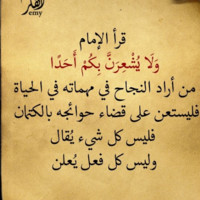 emy
قرأ الإمام
وَلَا يُشْعِرَنَّ بِكُمْ أَحَدًا
من أراد النجاح في مهماته في الحياة
فليستعن على قضاء حوائجه بالكتمان
فليس كل شيء يُقال
وليس كل فعل يُعلن